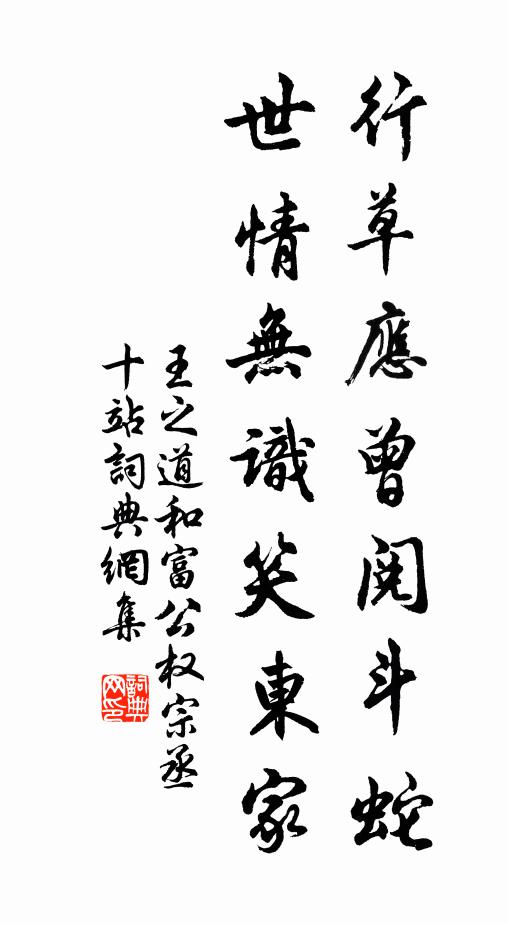 行草應曾閱斗蛇
世情無識笑東家
王之道和富公权宗丞
十站詞典網集
詞典
网印